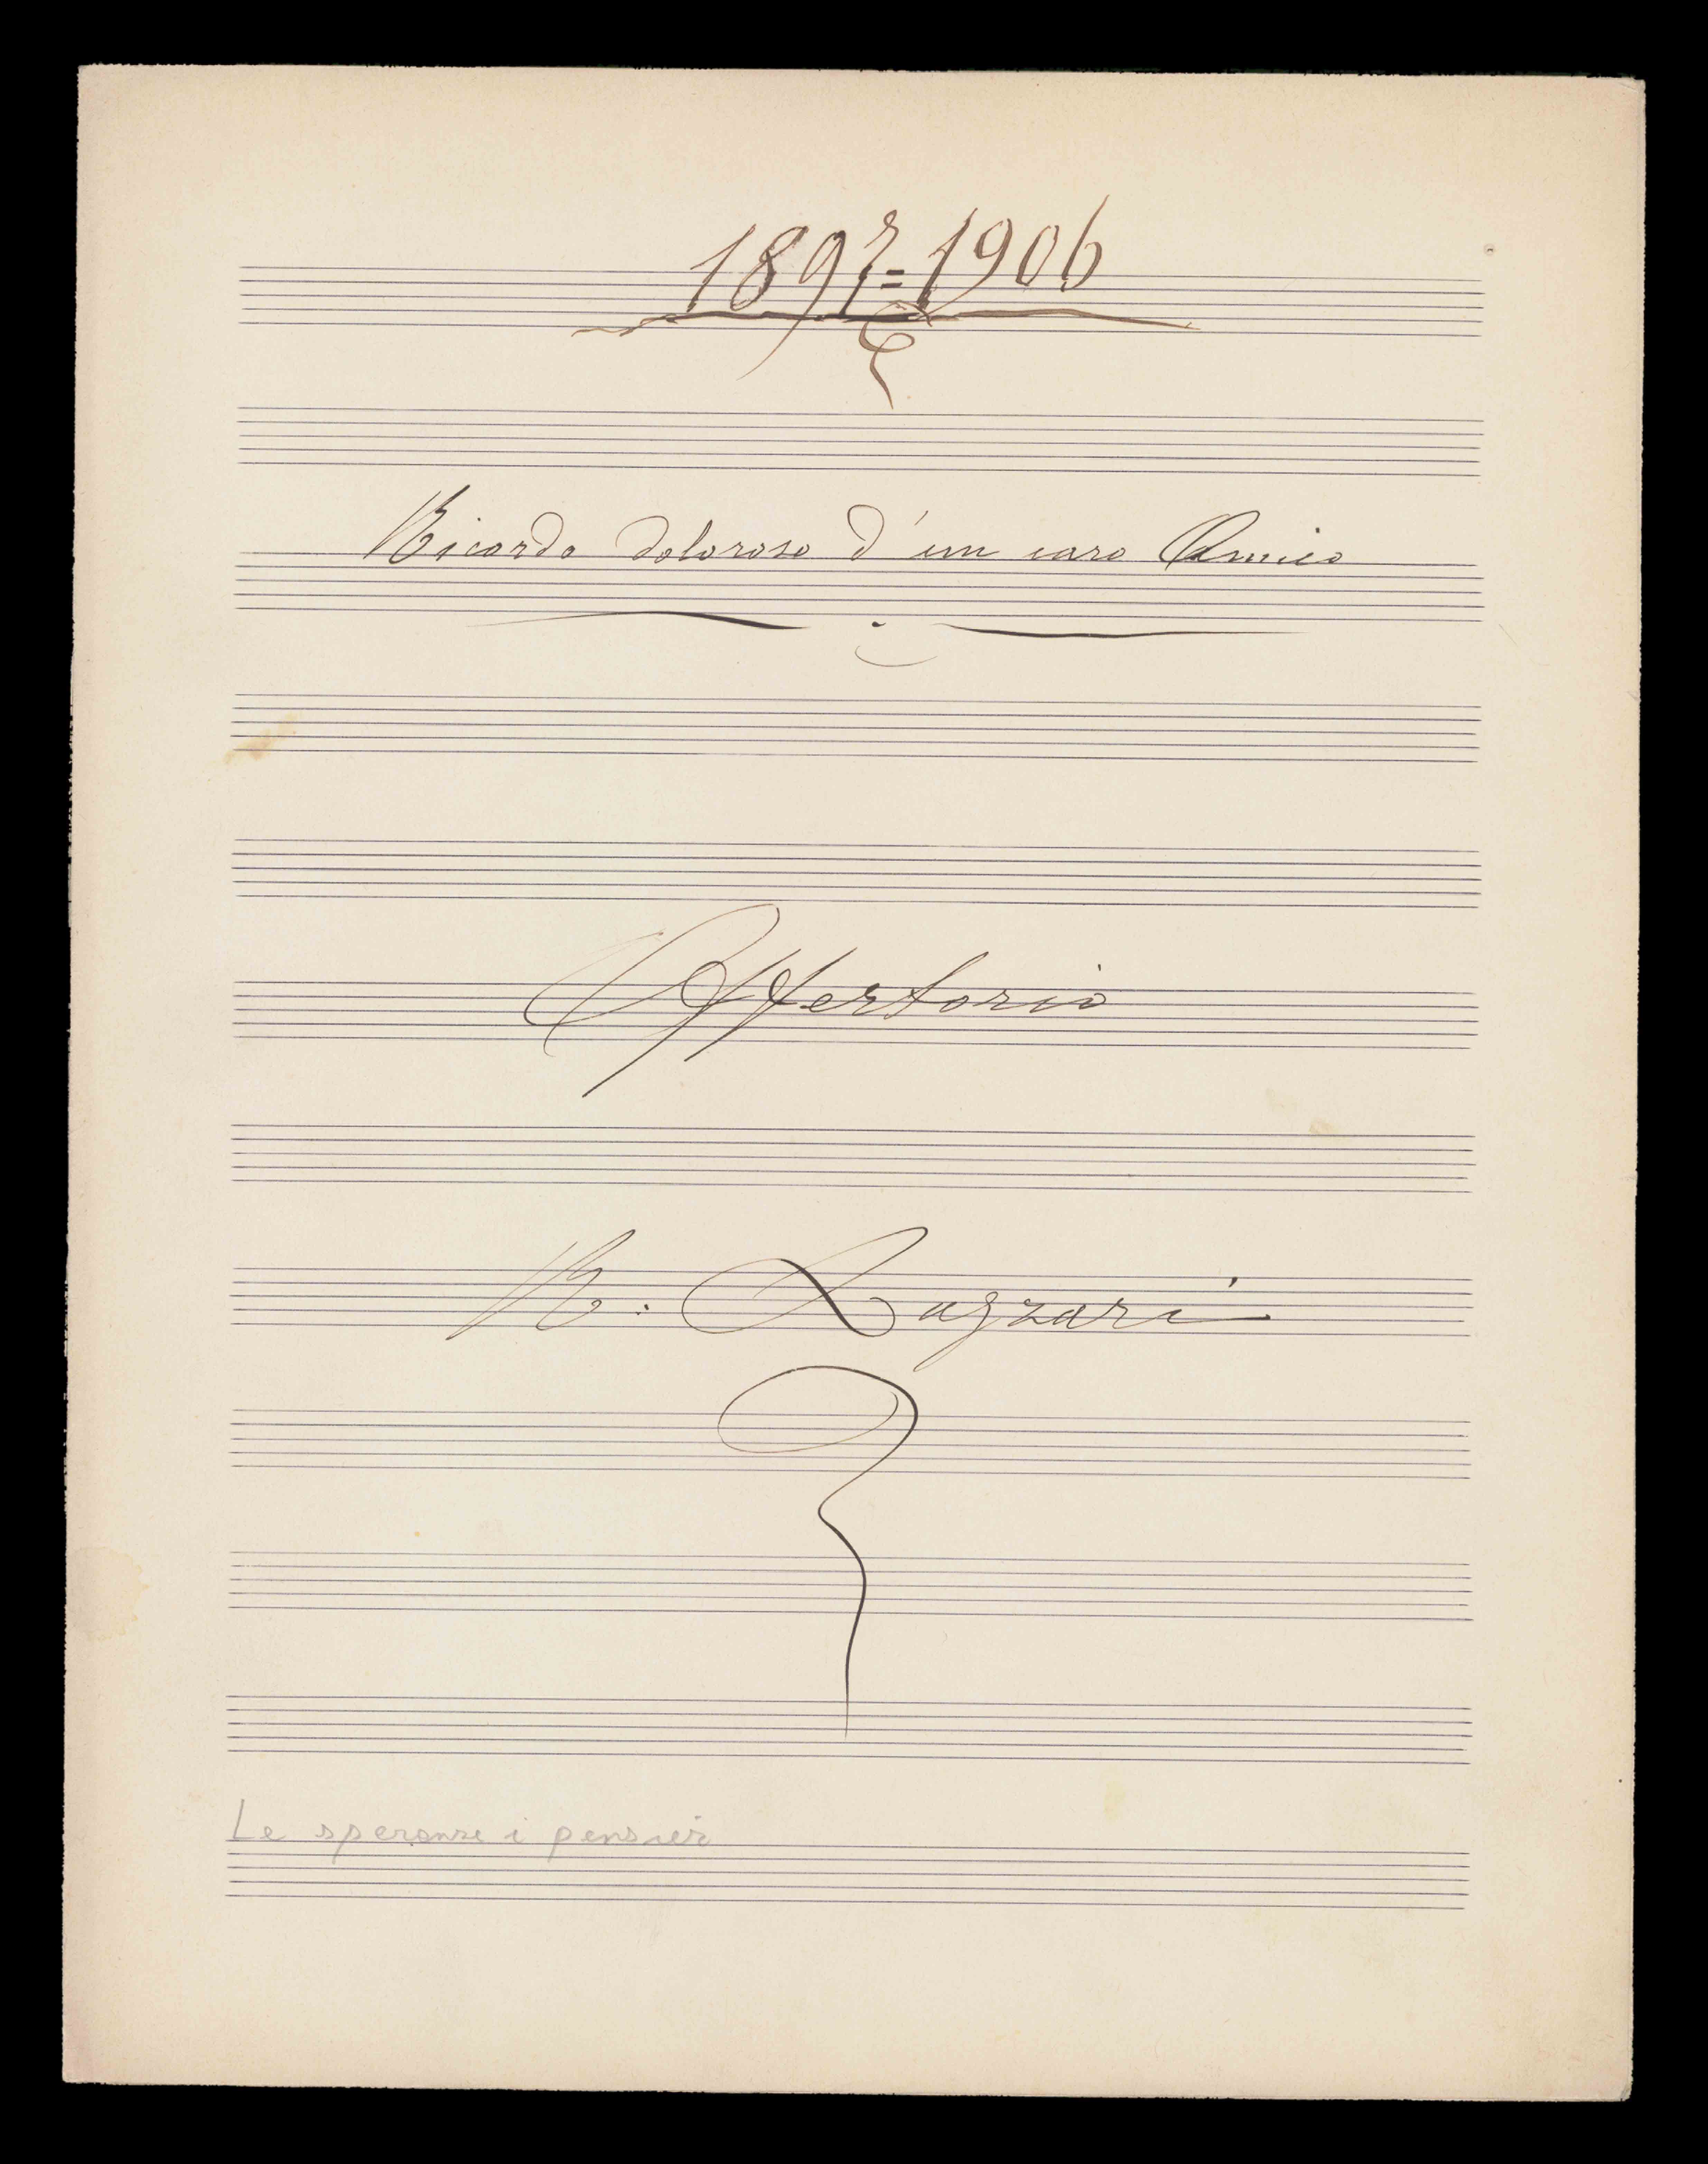 1897=1906
Ricordo doloroso d'un caro Amico
Offertorio
R. Lazzari
Le speranze i pensier